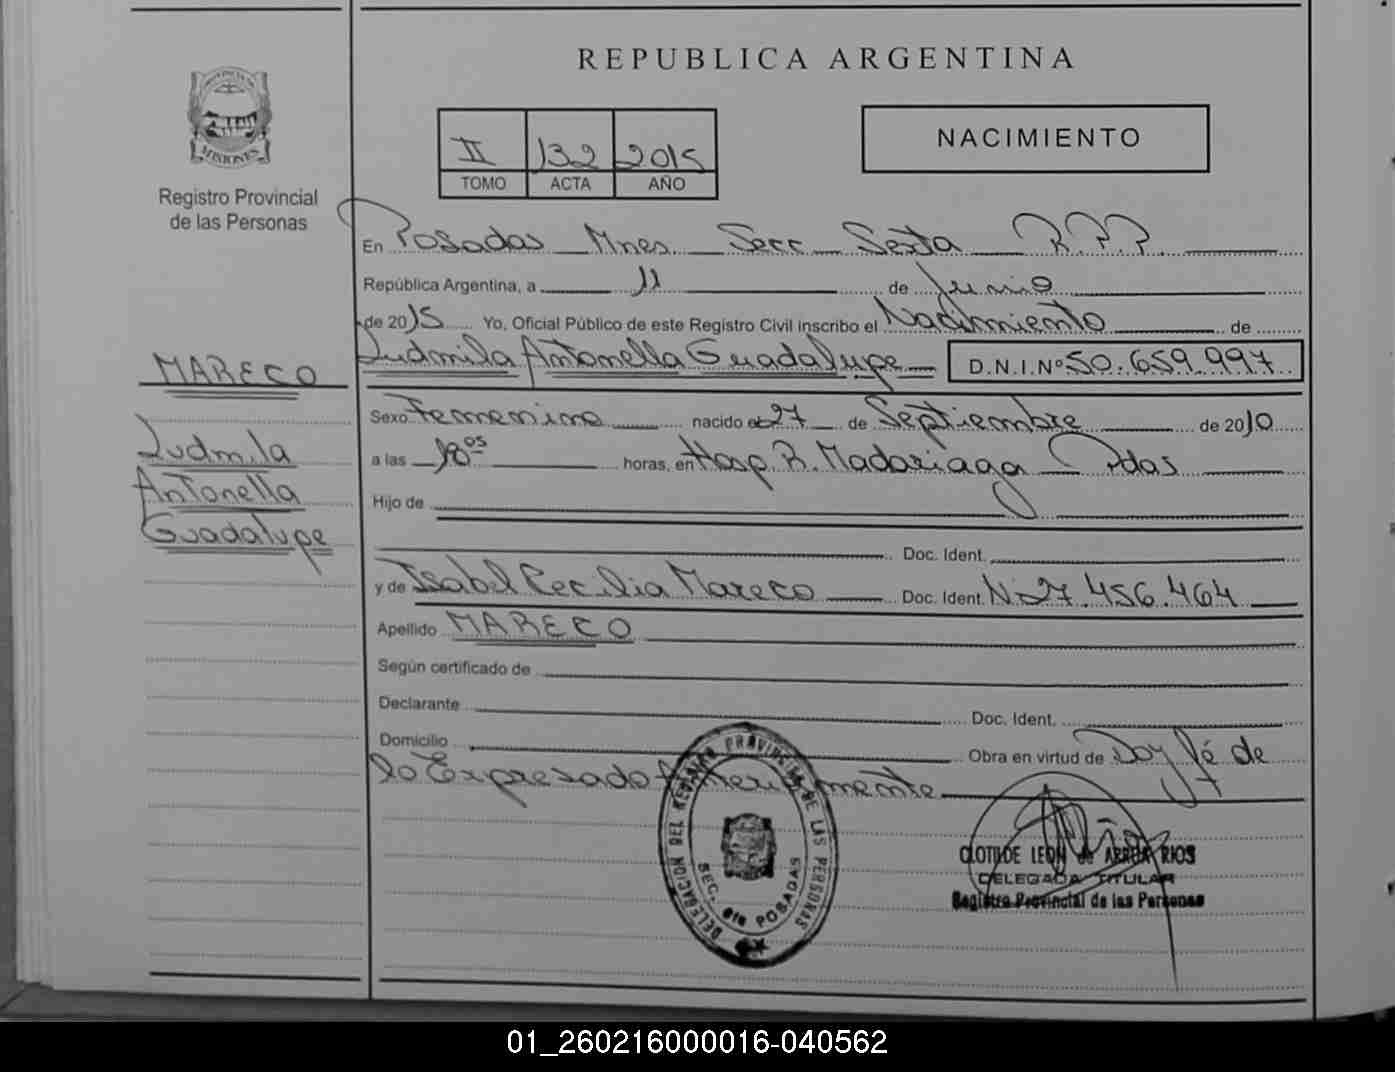 REPUBLICA ARGENTINA
PROVINCIA DE
MISIONES
Registro Provincial
de las Personas
II 132 2015
TOMO ACTA AÑO
NACIMIENTO
En Posadas Mnes. Secc. Sexta R.P.P.
República Argentina, a 11 de Junio
de 2015 Yo, Oficial Público de este Registro Civil inscribo el Nacimiento de
Ludmila Antonella Guadalupe D.N.I.Nº 50.659.997
MARECO
Ludmila
Antonella
Guadalupe
Sexo Femenino nacido el 27 de Septiembre de 2010
a las 18 os horas, en Hosp. R. Madariaga Pdas
Hijo de
Doc. Ident.
y de Isabel Cecilia Mareco Doc. Ident. Nº 27.456.464
Apellido MARECO
Según certificado de
Declarante Doc. Ident.
Domicilio Obra en virtud de Doy fé de
lo Expresado Anteriormente
DELEGACION DEL REGISTRO PROVINCIAL DE LAS PERSONAS
SEC. 6ta POSADAS
CLOTILDE LEON de ARRUA RIOS
DELEGADA TITULAR
Registro Provincial de las Personas
01_260216000016-040562